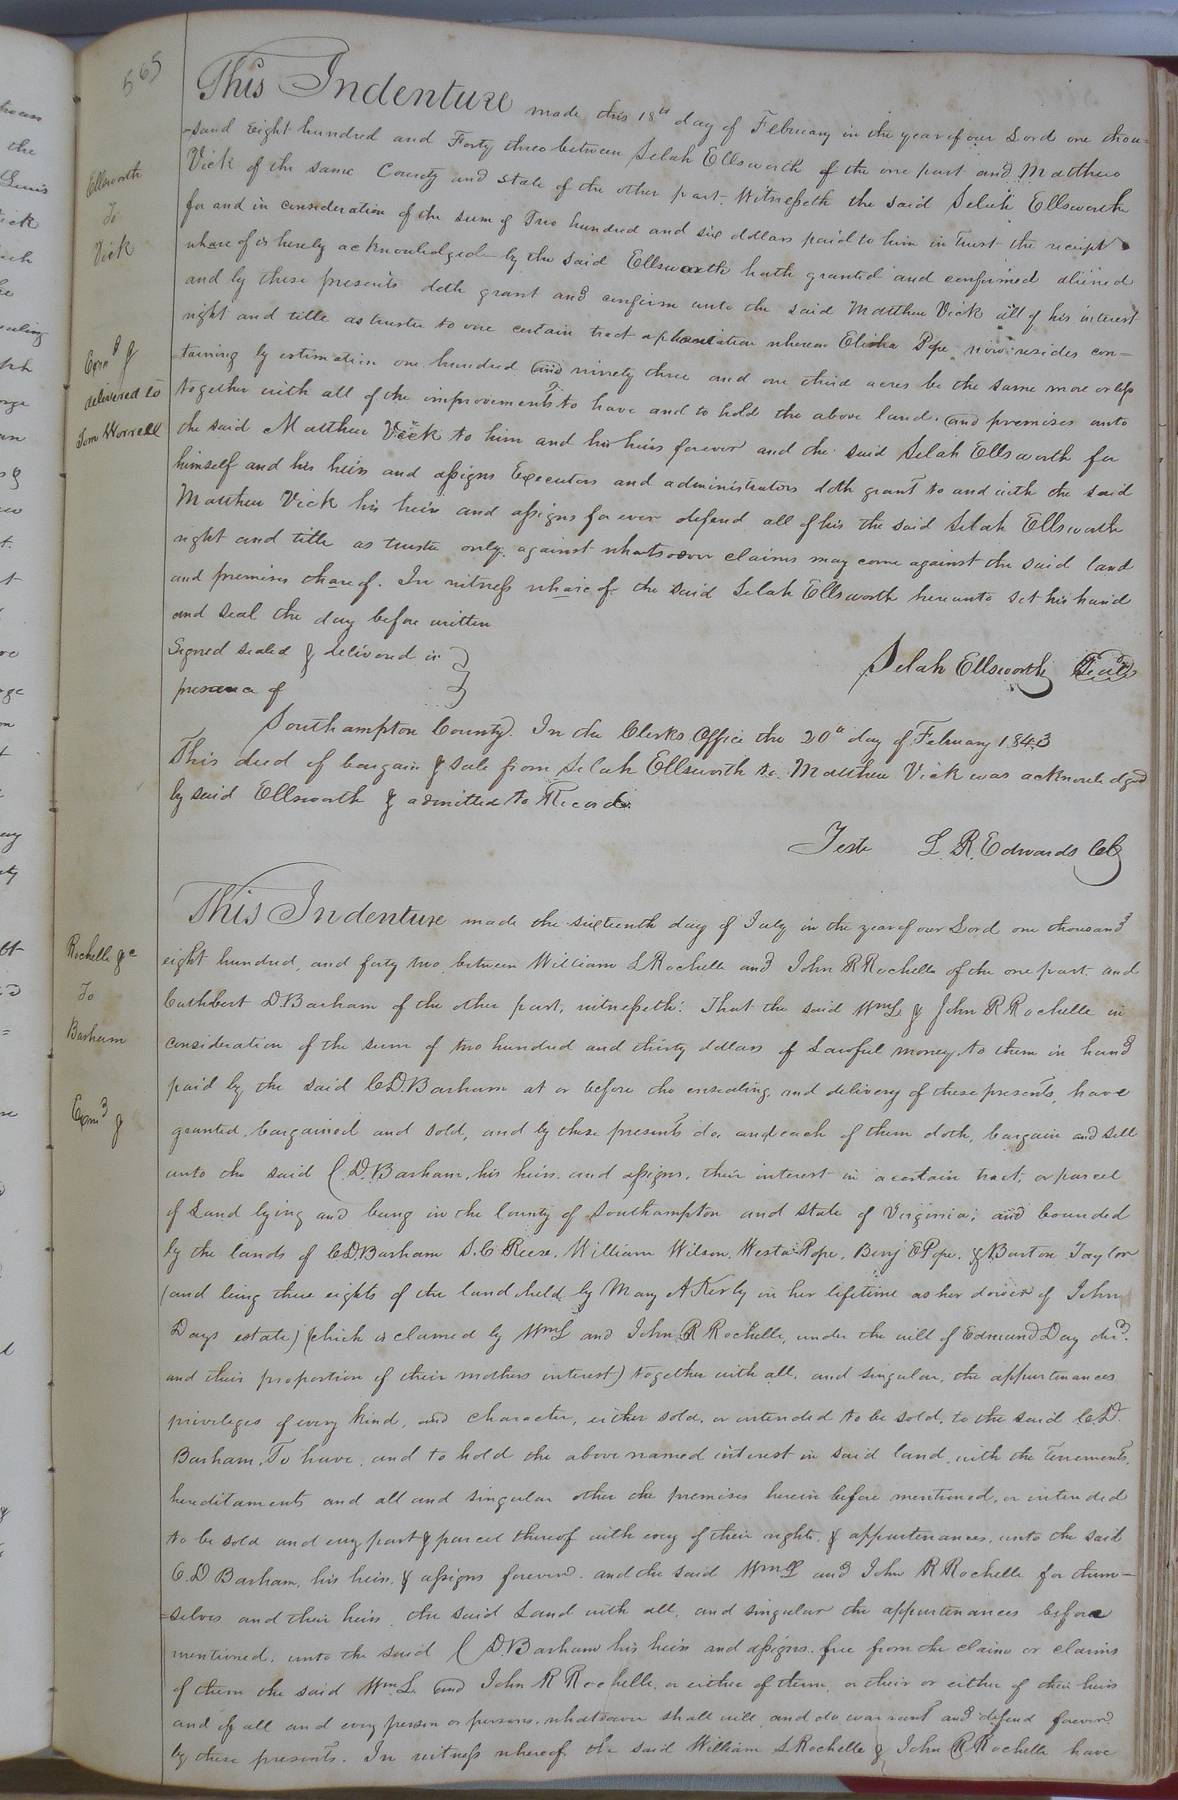 565
This Indenture made this 18th day of February in the year of our Lord one thou=
=sand eight hundred and Forty three between Selah Ellsworth of the one part and Matthew
Ellsworth
To
Vick
Vick of the same County and state of the other part. Witnesseth the said Selah Ellsworth
for and in consideration of the sum of Two hundred and six dollars paid to him in trust the receipt
where of is hereby acknowledged by the said Ellsworth hath granted and confirmed aliened
and by these presents doth grant and confirm unto the said Matthew Vick all of his interest
right and title as trustee to one certain tract or plantation whereon Elisha Pope now resides con-
Exmd &
delivered to
Tom Worrell
taining by estimation one hundred and ninety three and one third acres be the same more or less
together with all of the improvements to have and to hold the above land and premises unto
the said Matthew Vick to him and his heirs forever and the said Selah Ellsworth for
himself and his heirs and assigns Executors and administrators doth grant to and with the said
Matthew Vick his heirs and assigns for ever defend all of his the said Selah Ellsworth
right and title as trustee only against whatsoever claims may come against the said land
and premises thareof. In witness whareof the said Selah Ellsworth hereunto set his hand
and seal the day before written
Signed sealed & delivered in
presence of
Selah Ellsworth Seal
Southampton County. In the Clerks Office the 20th day of February 1843
This deed of bargain & sale from Selah Ellsworth to Matthew Vick was acknowledged
by said Ellsworth & admitted to Record.
Teste L. R. Edwards CC
This Indenture made the sixteenth day of July in the year of our Lord one thousand
Rochelle &c
To
Barham
Exmd &
eight hundred, and forty two, between William L Rochelle and John R Rochelle of the one part and
Cuthbert D. Barham of the other part, witnesseth: That the said Wm L & John R Rochelle in
consideration of the sum of two hundred and thirty dollars of Lawful money to them in hand
paid by the said C D. Barham at or before the ensealing and delivery of these presents, have
granted, bargained and sold, and by these presents do, and each of them doth, bargain and sell
unto the said C. D. Barham, his heirs and assigns, their interest in a certain tract, or parcel
of Land lying and being in the County of Southampton and State of Virginia; and bounded
by the lands of C D. Barham S. C Reese, William Wilson, Weston Pope, Benj E Pope, & Burton Taylor
(and being three eights of the land held by Mary A Kerby in her lifetime as her dower of John
Days estate) (which is claimed by Wm L and John R Rochelle, under the will of Edmund Day decd.
and their proportion of their mothers interest) together with all, and singular, the appurtenances
privileges of every kind, and character, either sold, or intended to be sold, to the said C. D.
Barham, To have, and to hold the above named interest in said land, with the tenements,
hereditaments and all and singular other the premises herein before mentioned, or intended
to be sold and evry part & parcel thereof with evry of their rights, & appurtenances, unto the said
C. D Barham, his heirs, & assigns forever. and the said Wm L and John R Rochelle for them-
=selves and their heirs the said Land with all, and singular the appurtenances before
mentioned, unto the said C D. Barham his heirs and assigns, free from the claim or claims
of them the said Wm L. and John R Rochelle, or either of them, or their or either of their heirs
and of all and every person or persons, whatsoever shall will, and do warrant and defend forever
by these presents. In witness whereof the said William L Rochelle & John R Rochelle have